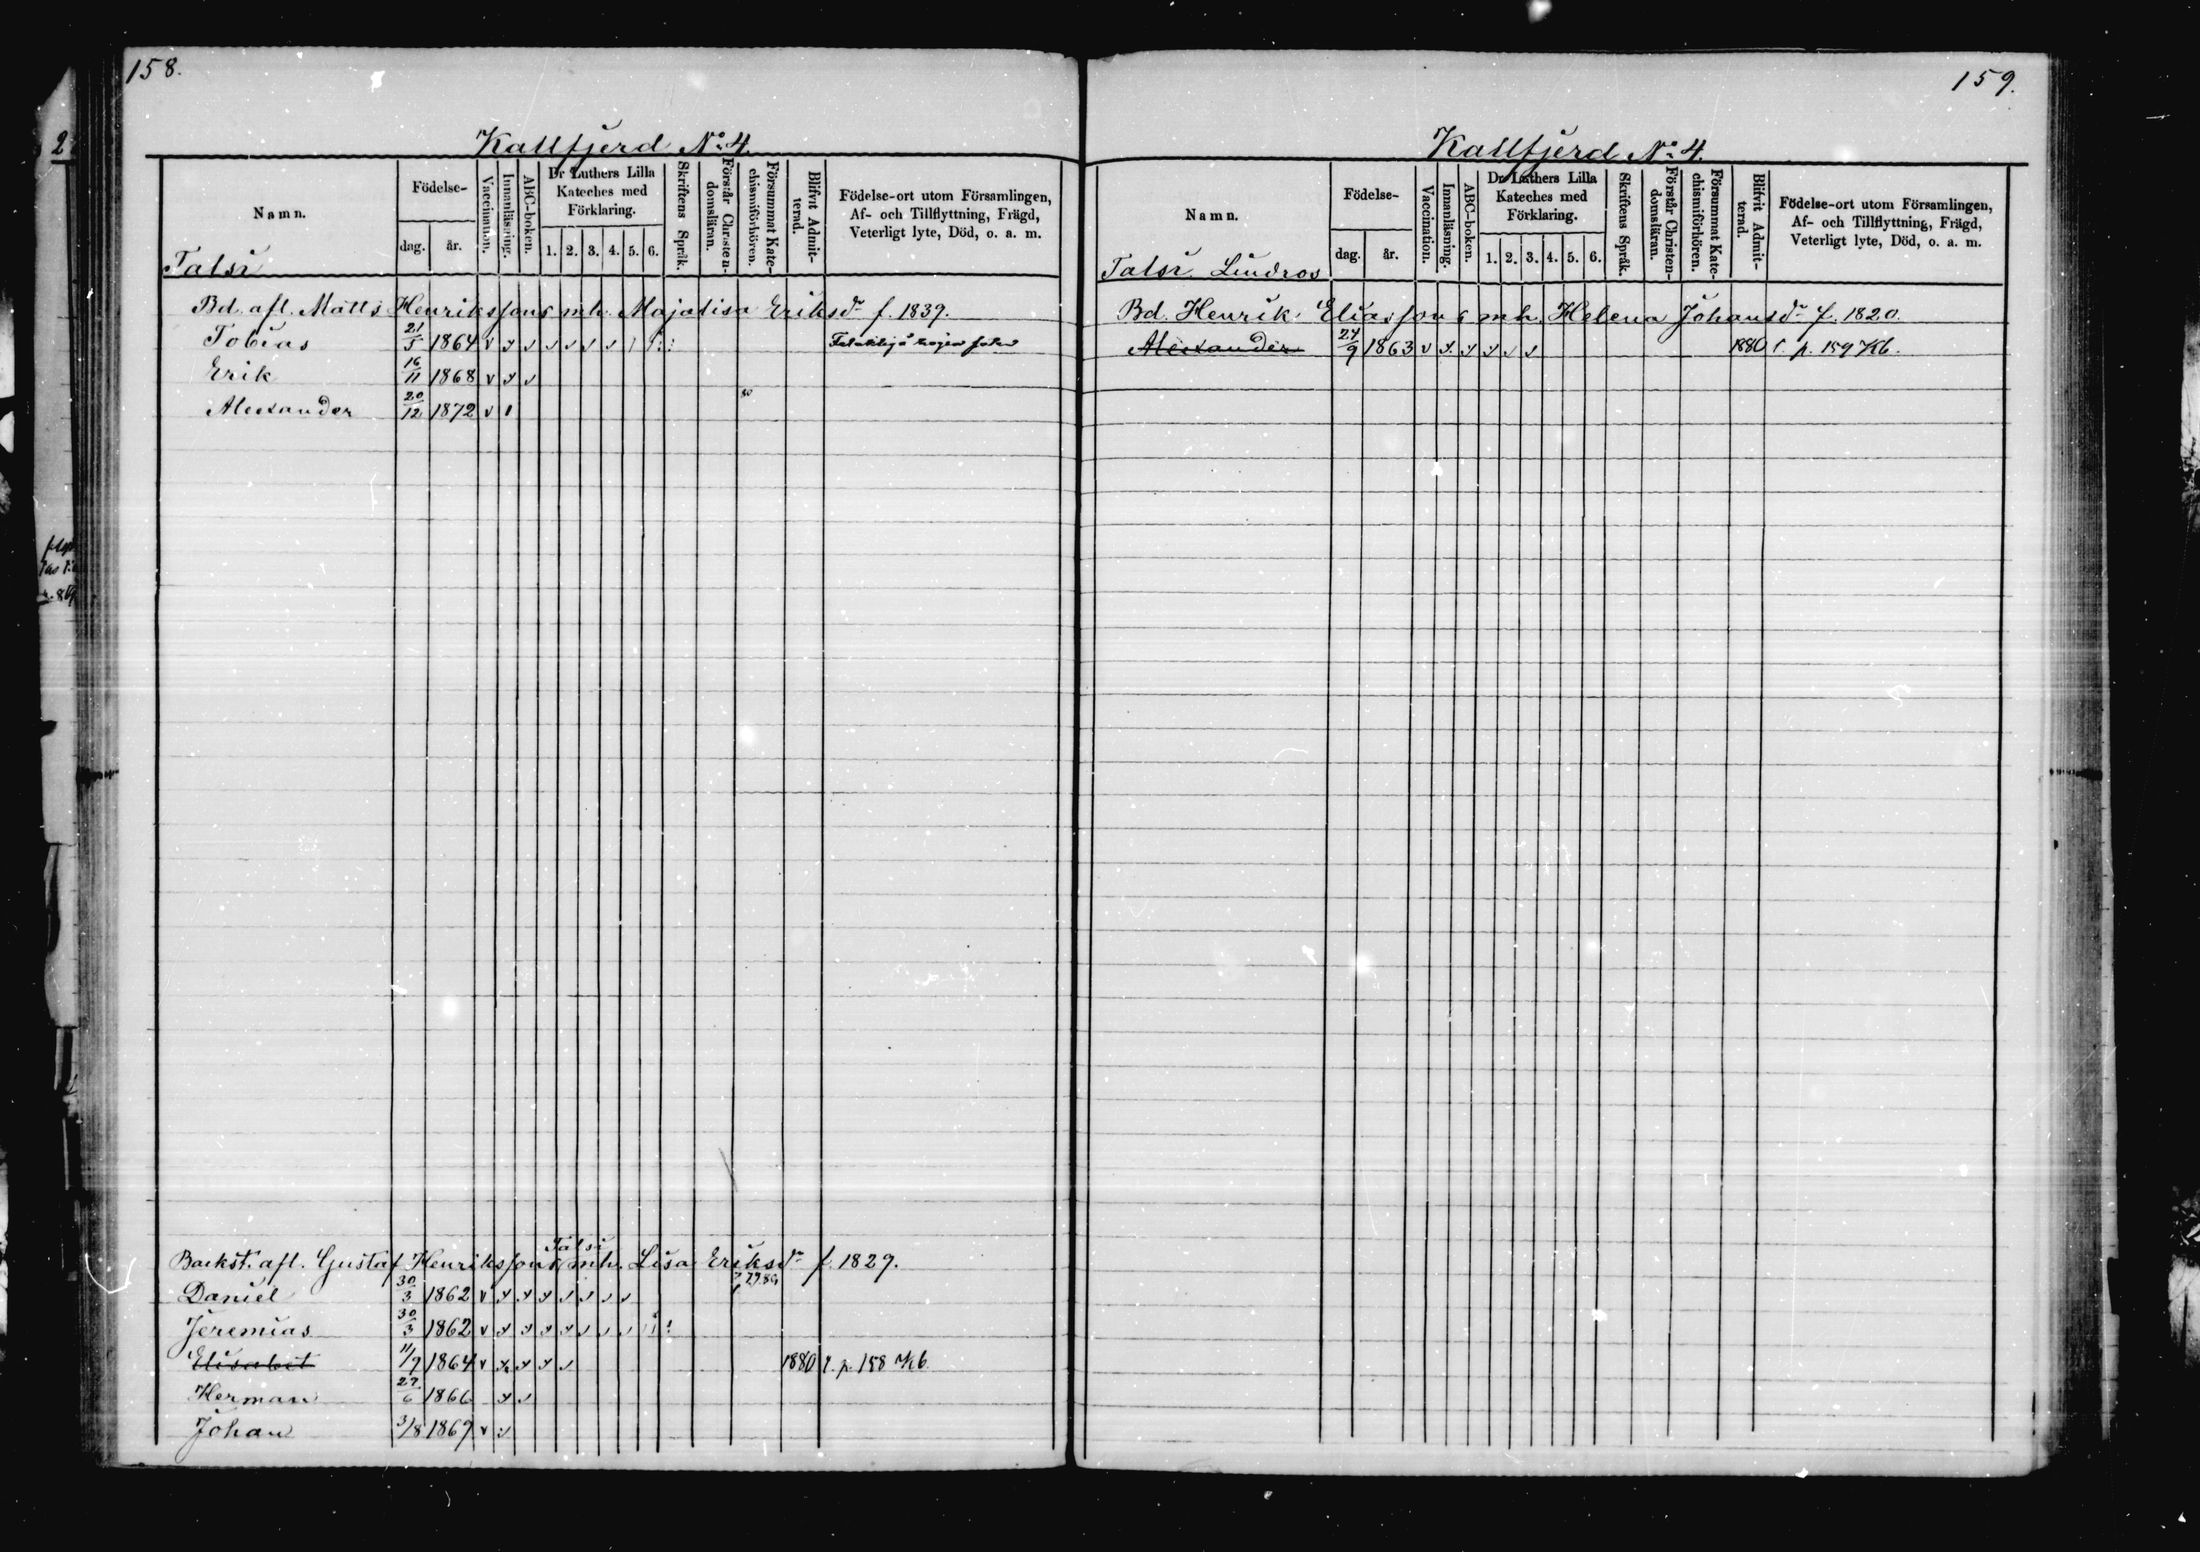 158.
Kallfjerd No 4.
Namn.
Födelse-
dag. år.
Vaccination.
Innanläsning.
ABC-boken.
Dr Luthers Lilla
Kateches med
Förklaring.
1. 2. 3. 4. 5. 6.
Skriftens Språk.
Förstår Christen-
domsläran.
Försummat Kate-
chismiförhören.
Blifvit Admit-
terad.
Födelse-ort utom Församlingen,
Af- och Tillflyttning, Frägd,
Veterligt lyte, Död, o. a. m.
Talsi
Bd. afl. Matts Henrikssons mh. Majalisa Eriksdr f. 1839.
Tobias 21/5 1864 v
Erik 16/11 1868 v
Alexander 20/12 1872 v
Talsi
Backst. afl. Gustaf Henrikssons mh. Lisa Eriksdr f. 1829.
Daniel 30/3 1862 v
Jeremias 30/3 1862 v
Elisabet 11/9 1864 v 1880 r. p. 158 Kb.
Herman 27/6 1866
Johan 3/8 1869 v
159.
Kallfjerd No 4.
Namn.
Födelse-
dag. år.
Vaccination.
Innanläsning.
ABC-boken.
Dr Luthers Lilla
Kateches med
Förklaring.
1. 2. 3. 4. 5. 6.
Skriftens Språk.
Förstår Christen-
domsläran.
Försummat Kate-
chismiförhören.
Blifvit Admit-
terad.
Födelse-ort utom Församlingen,
Af- och Tillflyttning, Frägd,
Veterligt lyte, Död, o. a. m.
Talsi Lindros
Bd. Henrik Eliassons mh. Helena Johansdr f. 1820.
Alexander 24/9 1863 v 1880 r. p. 159 Kb.